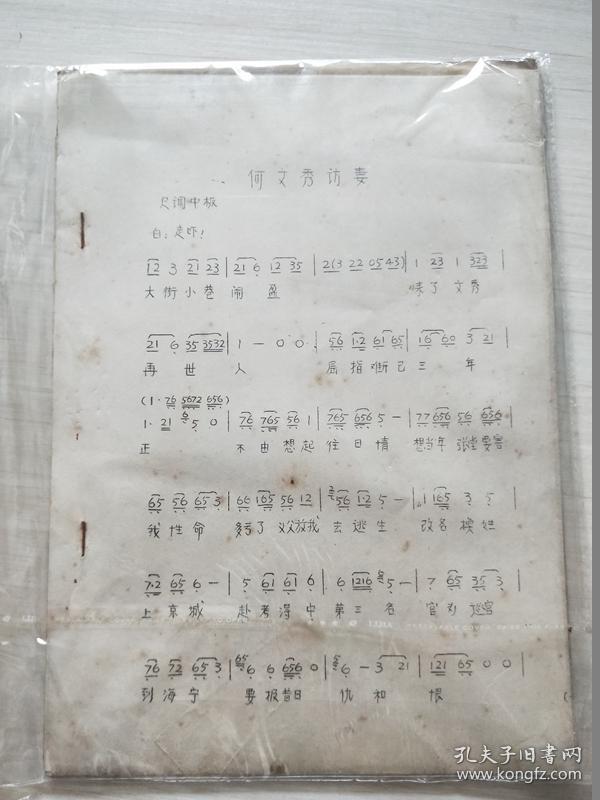 何文秀访妻
尺调中板
白:走吓!
12 3 21 23 | 21 6 12 35 | 2(3 22 05 43) | 1 23 1 323 |
大街小巷闹盈 文秀
21 6 35 3532 | 1 — 0 0 | 56 1·2 61 65 | 16 60 3 21 |
再世人 屈指 三年
(1·76 5672 656)
1· 21 6 5 0 | 76 765 56 1 | 765 656 5 — | 77 656 56 656 |
正 不由想起往日情 想当年 张堂要害
65 56 65 3 | 66 165 56 12 | 56 1·2 5 — | 1 165 3 5 |
我性命 了 放我去逃生 改名换姓
7·2 65 6 — | 5 61 61 6 | 6 1216 5 — | 7 65 35 3 |
上京城 赴考得中第三名 官
76 72 65 3 | 65 6 6 656 0 | 5 6 — 3 21 | 121 65 0 0 |
到海宁 要报昔日仇和恨
孔夫子旧书网
www.kongfz.com